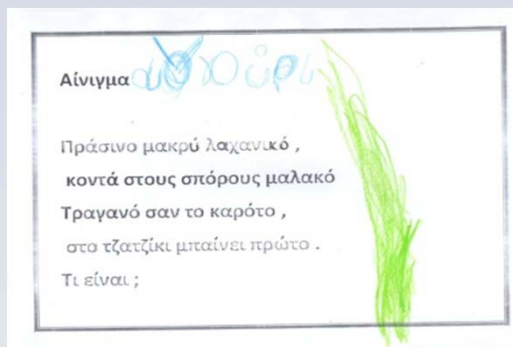 Αίνιγμα αγγούρι
Πράσινο μακρύ λαχανικό ,
κοντά στους σπόρους μαλακό
Τραγανό σαν το καρότο ,
στο τζατζίκι μπαίνει πρώτο .
Τι είναι ;